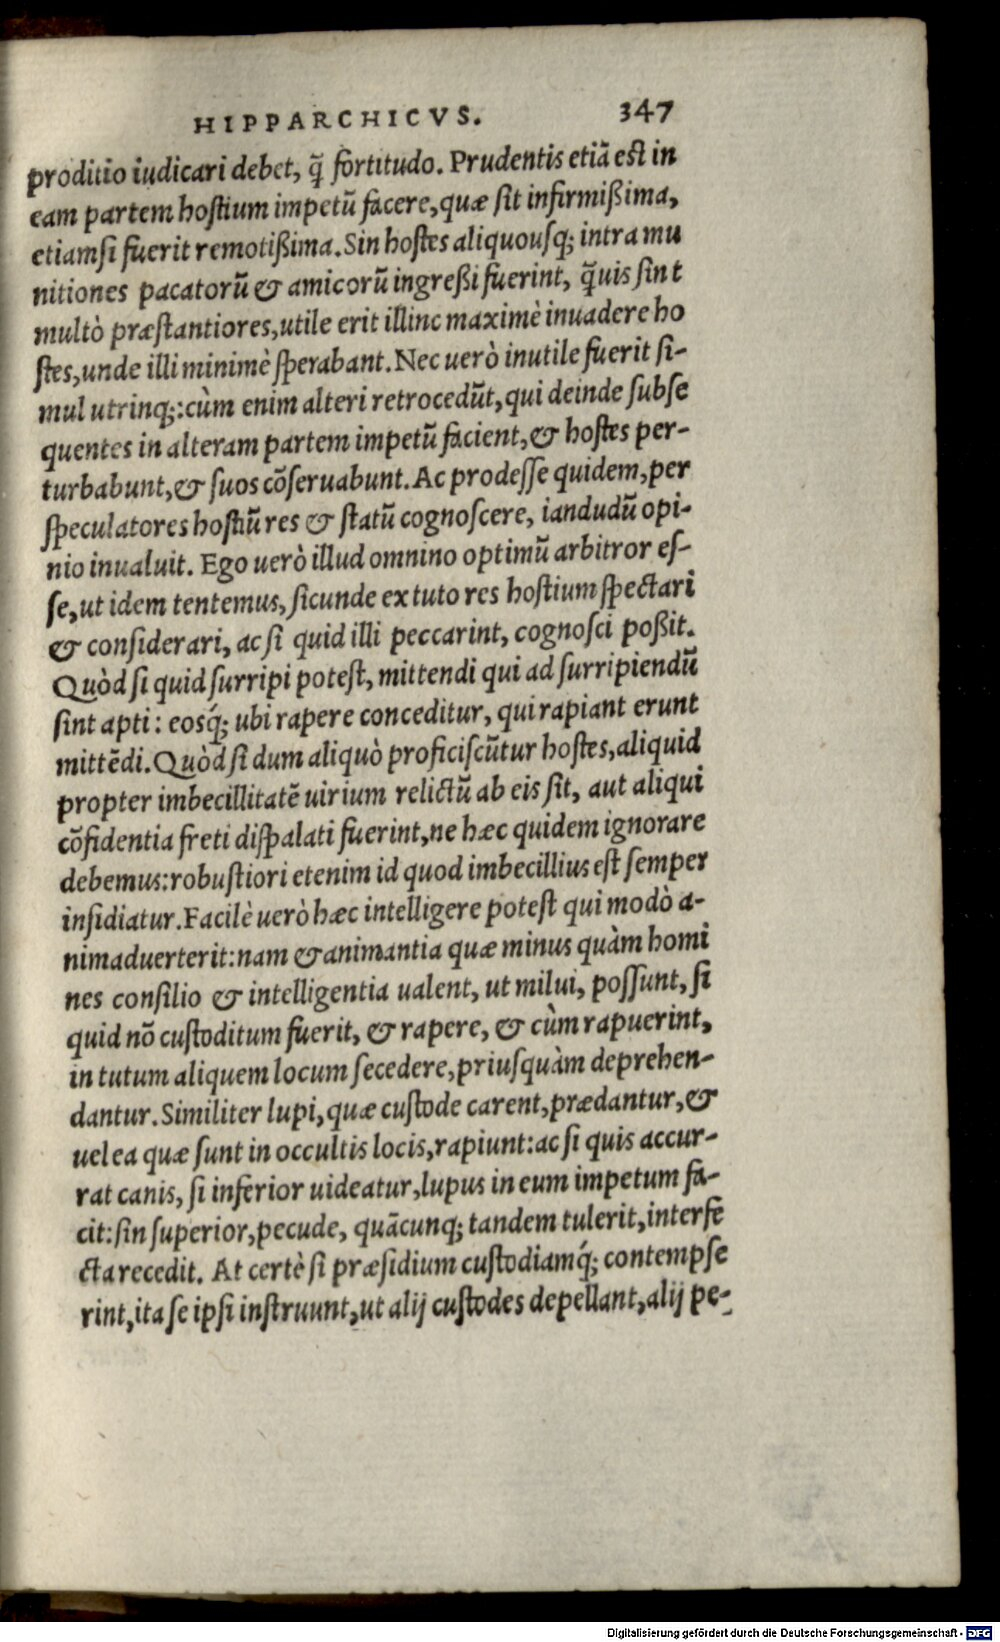 HIPPARCHICVS. 347
proditio iudicari debet, q̃ fortitudo. Prudentis etiã est in
eam partem hostium impetũ facere, quæ sit infirmißima,
etiamsi fuerit remotißima. Sin hostes aliquousq; intra mu
nitiones pacatorũ & amicorũ ingreßi fuerint, q̃uis sint
multò præstantiores, utile erit illinc maximè inuadere ho
stes, unde illi minimè sperabant. Nec uerò inutile fuerit si-
mul utrinq;: cùm enim alteri retrocedũt, qui deinde subse
quentes in alteram partem impetũ facient, & hostes per-
turbabunt, & suos cõseruabunt. Ac prodesse quidem, per
speculatores hostiũ res & statũ cognoscere, iandudũ opi-
nio inualuit. Ego uerò illud omnino optimũ arbitror es-
se, ut idem tentemus, sicunde ex tuto res hostium spectari
& considerari, ac si quid illi peccarint, cognosci poßit.
Quòd si quid surripi potest, mittendi qui ad surripiendũ
sint apti: eosq́; ubi rapere conceditur, qui rapiant erunt
mittẽdi. Quòd si dum aliquò proficiscũtur hostes, aliquid
propter imbecillitatẽ uirium relictũ ab eis sit, aut aliqui
cõfidentia freti dispalati fuerint, ne hæc quidem ignorare
debemus: robustiori etenim id quod imbecillius est semper
insidiatur. Facilè uerò hæc intelligere potest qui modò a-
nimaduerterit: nam & animantia quæ minus quàm homi
nes consilio & intelligentia ualent, ut milui, possunt, si
quid nõ custoditum fuerit, & rapere, & cùm rapuerint,
in tutum aliquem locum secedere, priusquàm deprehen-
dantur. Similiter lupi, quæ custode carent, prædantur, &
uel ea quæ sunt in occultis locis, rapiunt: ac si quis accur-
rat canis, si inferior uideatur, lupus in eum impetum fa-
cit: sin superior, pecude, quãcunq; tandem tulerit, interfe
cta recedit. At certè si præsidium custodiamq́; contempse
rint, ita se ipsi instruunt, ut alij custodes depellant, alij pe-
Digitalisierung gefördert durch die Deutsche Forschungsgemeinschaft - DFG